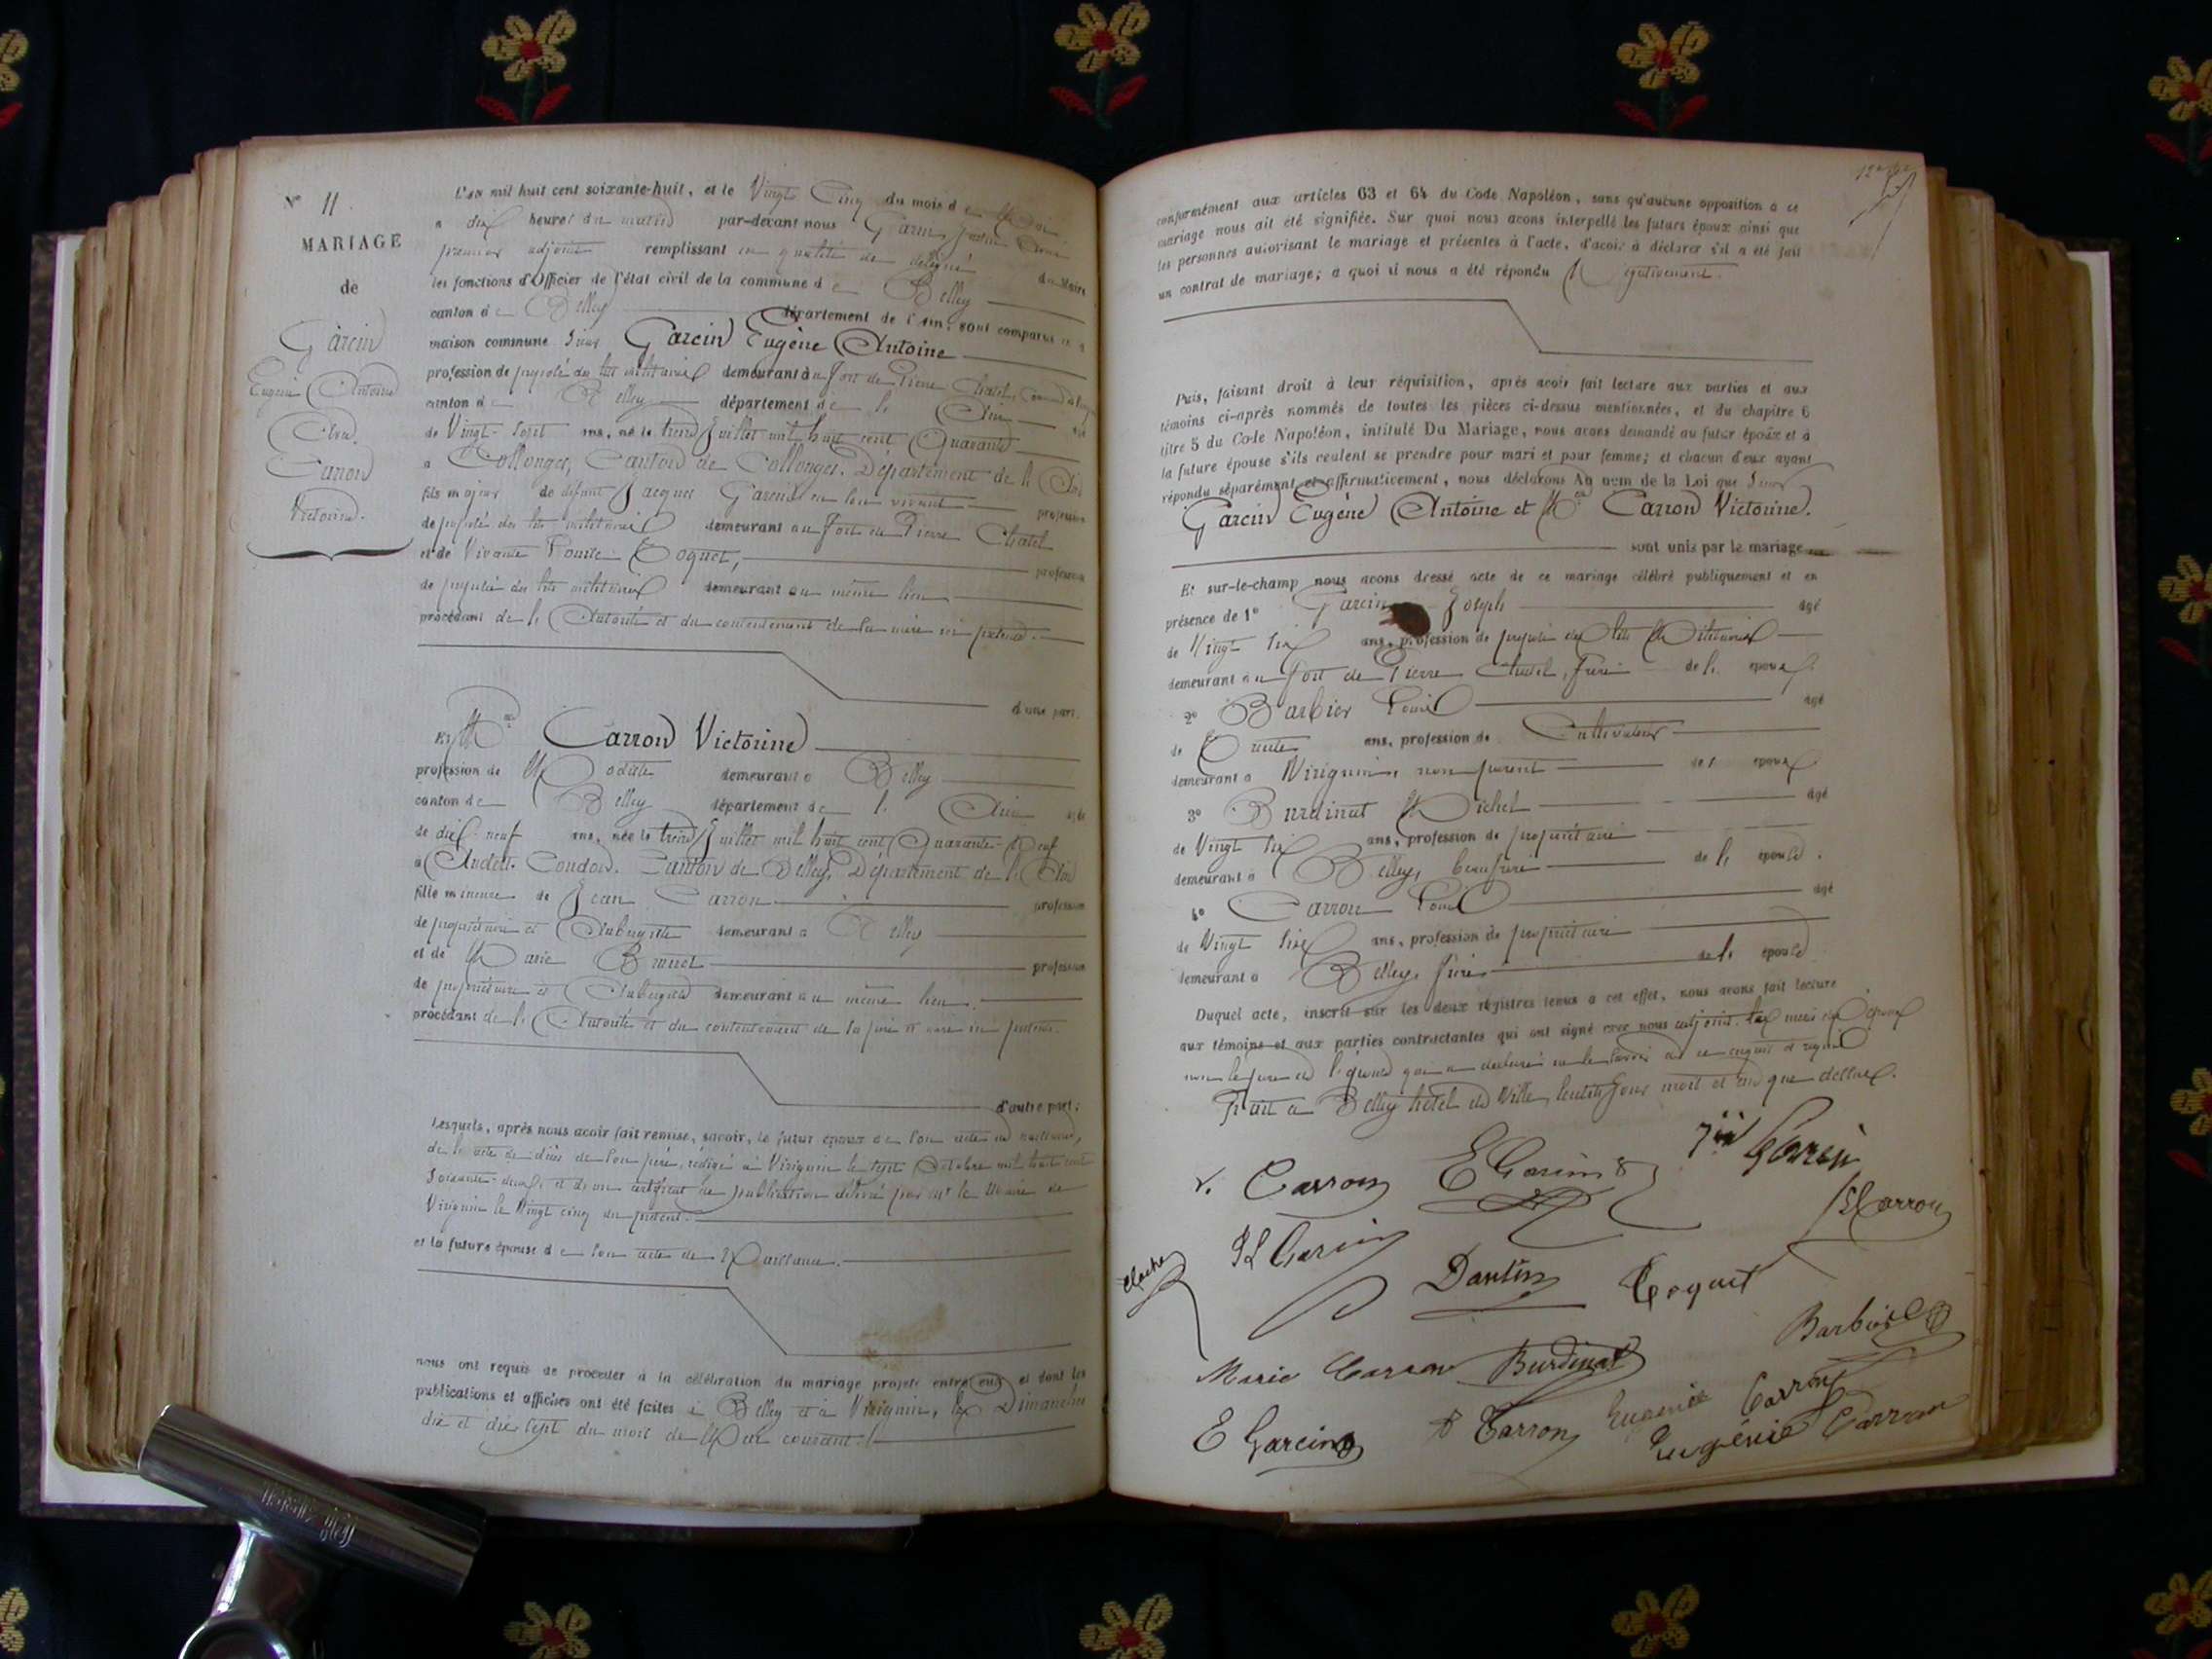 N° 11.
MARIAGE
de
Garcin
Eugène Antoine
et
Carron
Victorine.
L'an mil huit cent soixante-huit, et le Vingt Cinq du mois de Mai
à dix heures du matin par-devant nous
premier adjoint remplissant en qualité de délégué du Maire
les fonctions d'Officier de l'état civil de la commune de Belley
canton de Belley département de l'Ain, sont comparus en la
maison commune Sieur Garcin Eugène Antoine
profession de préposé des lits militaires demeurant au fort de Pierre Chatel,
canton de Belley département de l'Ain
de Vingt-Sept ans, né le treize Juillet mil huit cent Quarante
à Collonges, Canton de Collonges. Département de l'Ain
fils majeur de défunt Jacques Garcin en son vivant profession
de préposé des lits militaires demeurant au fort de Pierre Chatel
et de Vivante Louise Coquet, profession
de préposée des lits militaires demeurant au même lieu
procédant de l'Autorité et du consentement de sa mère ici présente.
d'une part.
Et Carron Victorine
profession de Modiste demeurant à Belley
canton de Belley département de l'Ain agée
de dix-neuf ans, née le treize Juillet mil huit cent Quarante-Neuf
à Andert-Condon. Canton de Belley, Département de l'Ain
fille mineure de Jean Carron profession
de propriétaire et Aubergiste demeurant à Belley
et de Marie Brunet profession
de propriétaire et Aubergiste demeurant au même lieu.
procédant de l'Autorité et du consentement de ses père et mère ici présents.
d'autre part;
Lesquels, après nous avoir fait remise, savoir, le futur époux de son acte de naissance,
de l'acte de décès de son père, rédigé à Virignin le sept Octobre mil huit cent
Soixante-deux, et d'un certificat de publication délivré par Mr le Maire de
Virignin le Vingt cinq du présent.
et la future épouse de son acte de Naissance.
nous ont requis de procéder à la célébration du mariage projeté entre eux et dont les
publications et affiches ont été faites à Belley et à Virignin, les Dimanches
dix et dix sept du mois de Mai courant
conformément aux articles 63 et 64 du Code Napoléon, sans qu'aucune opposition à ce
mariage nous ait été signifiée. Sur quoi nous avons interpellé les futurs époux ainsi que
les personnes autorisant le mariage et présentes à l'acte, d'avoir à déclarer s'il a été fait
un contrat de mariage; à quoi il nous a été répondu Négativement.
Puis, faisant droit à leur réquisition, après avoir fait lecture aux parties et aux
témoins ci-après nommés de toutes les pièces ci-dessus mentionnées, et du chapitre 6
titre 5 du Code Napoléon, intitulé Du Mariage, nous avons demandé au futur époux et à
la future épouse s'ils veulent se prendre pour mari et pour femme; et chacun d'eux ayant
répondu séparément et affirmativement, nous déclarons Au nom de la Loi que Sieur
Garcin Eugène Antoine et Carron Victorine.
sont unis par le mariage
Et sur-le-champ nous avons dressé acte de ce mariage célébré publiquement et en
présence de 1° Garcin Joseph agé
de Vingt six ans, profession de préposé des lits Militaires
demeurant au fort de Pierre Chatel, frère de l'époux.
2° Barbier Louis agé
de Trente ans, profession de Cultivateur
demeurant à Virignin, non parent des époux
3° Burdinat Michel agé
de Vingt six ans, profession de propriétaire
demeurant à Belley, beau frère de l'épouse.
4° Carron Louis agé
de Vingt six ans, profession de propriétaire
demeurant à Belley, frère de l'épouse
Duquel acte, inscrit sur les deux registres tenus à cet effet, nous avons fait lecture
aux témoins et aux parties contractantes qui ont signé avec nous adjoint,
Fait à Belley hôtel de Ville, les dits jour mois et an que dessus.
V. Carron E Garcin Garcin
Carron
Garcin
Dantin Coquet
Barbier
Marie Carron Burdinat
E Garcin Carron Eugénie Carron
Eugénie Carron